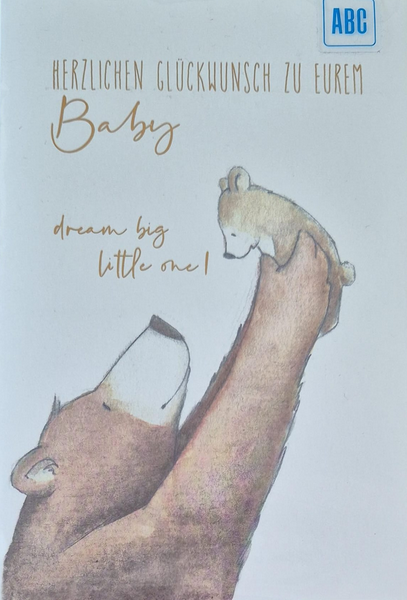 ABC
HERZLICHEN GLÜCKWUNSCH ZU EUREM
Baby
dream big
little one!